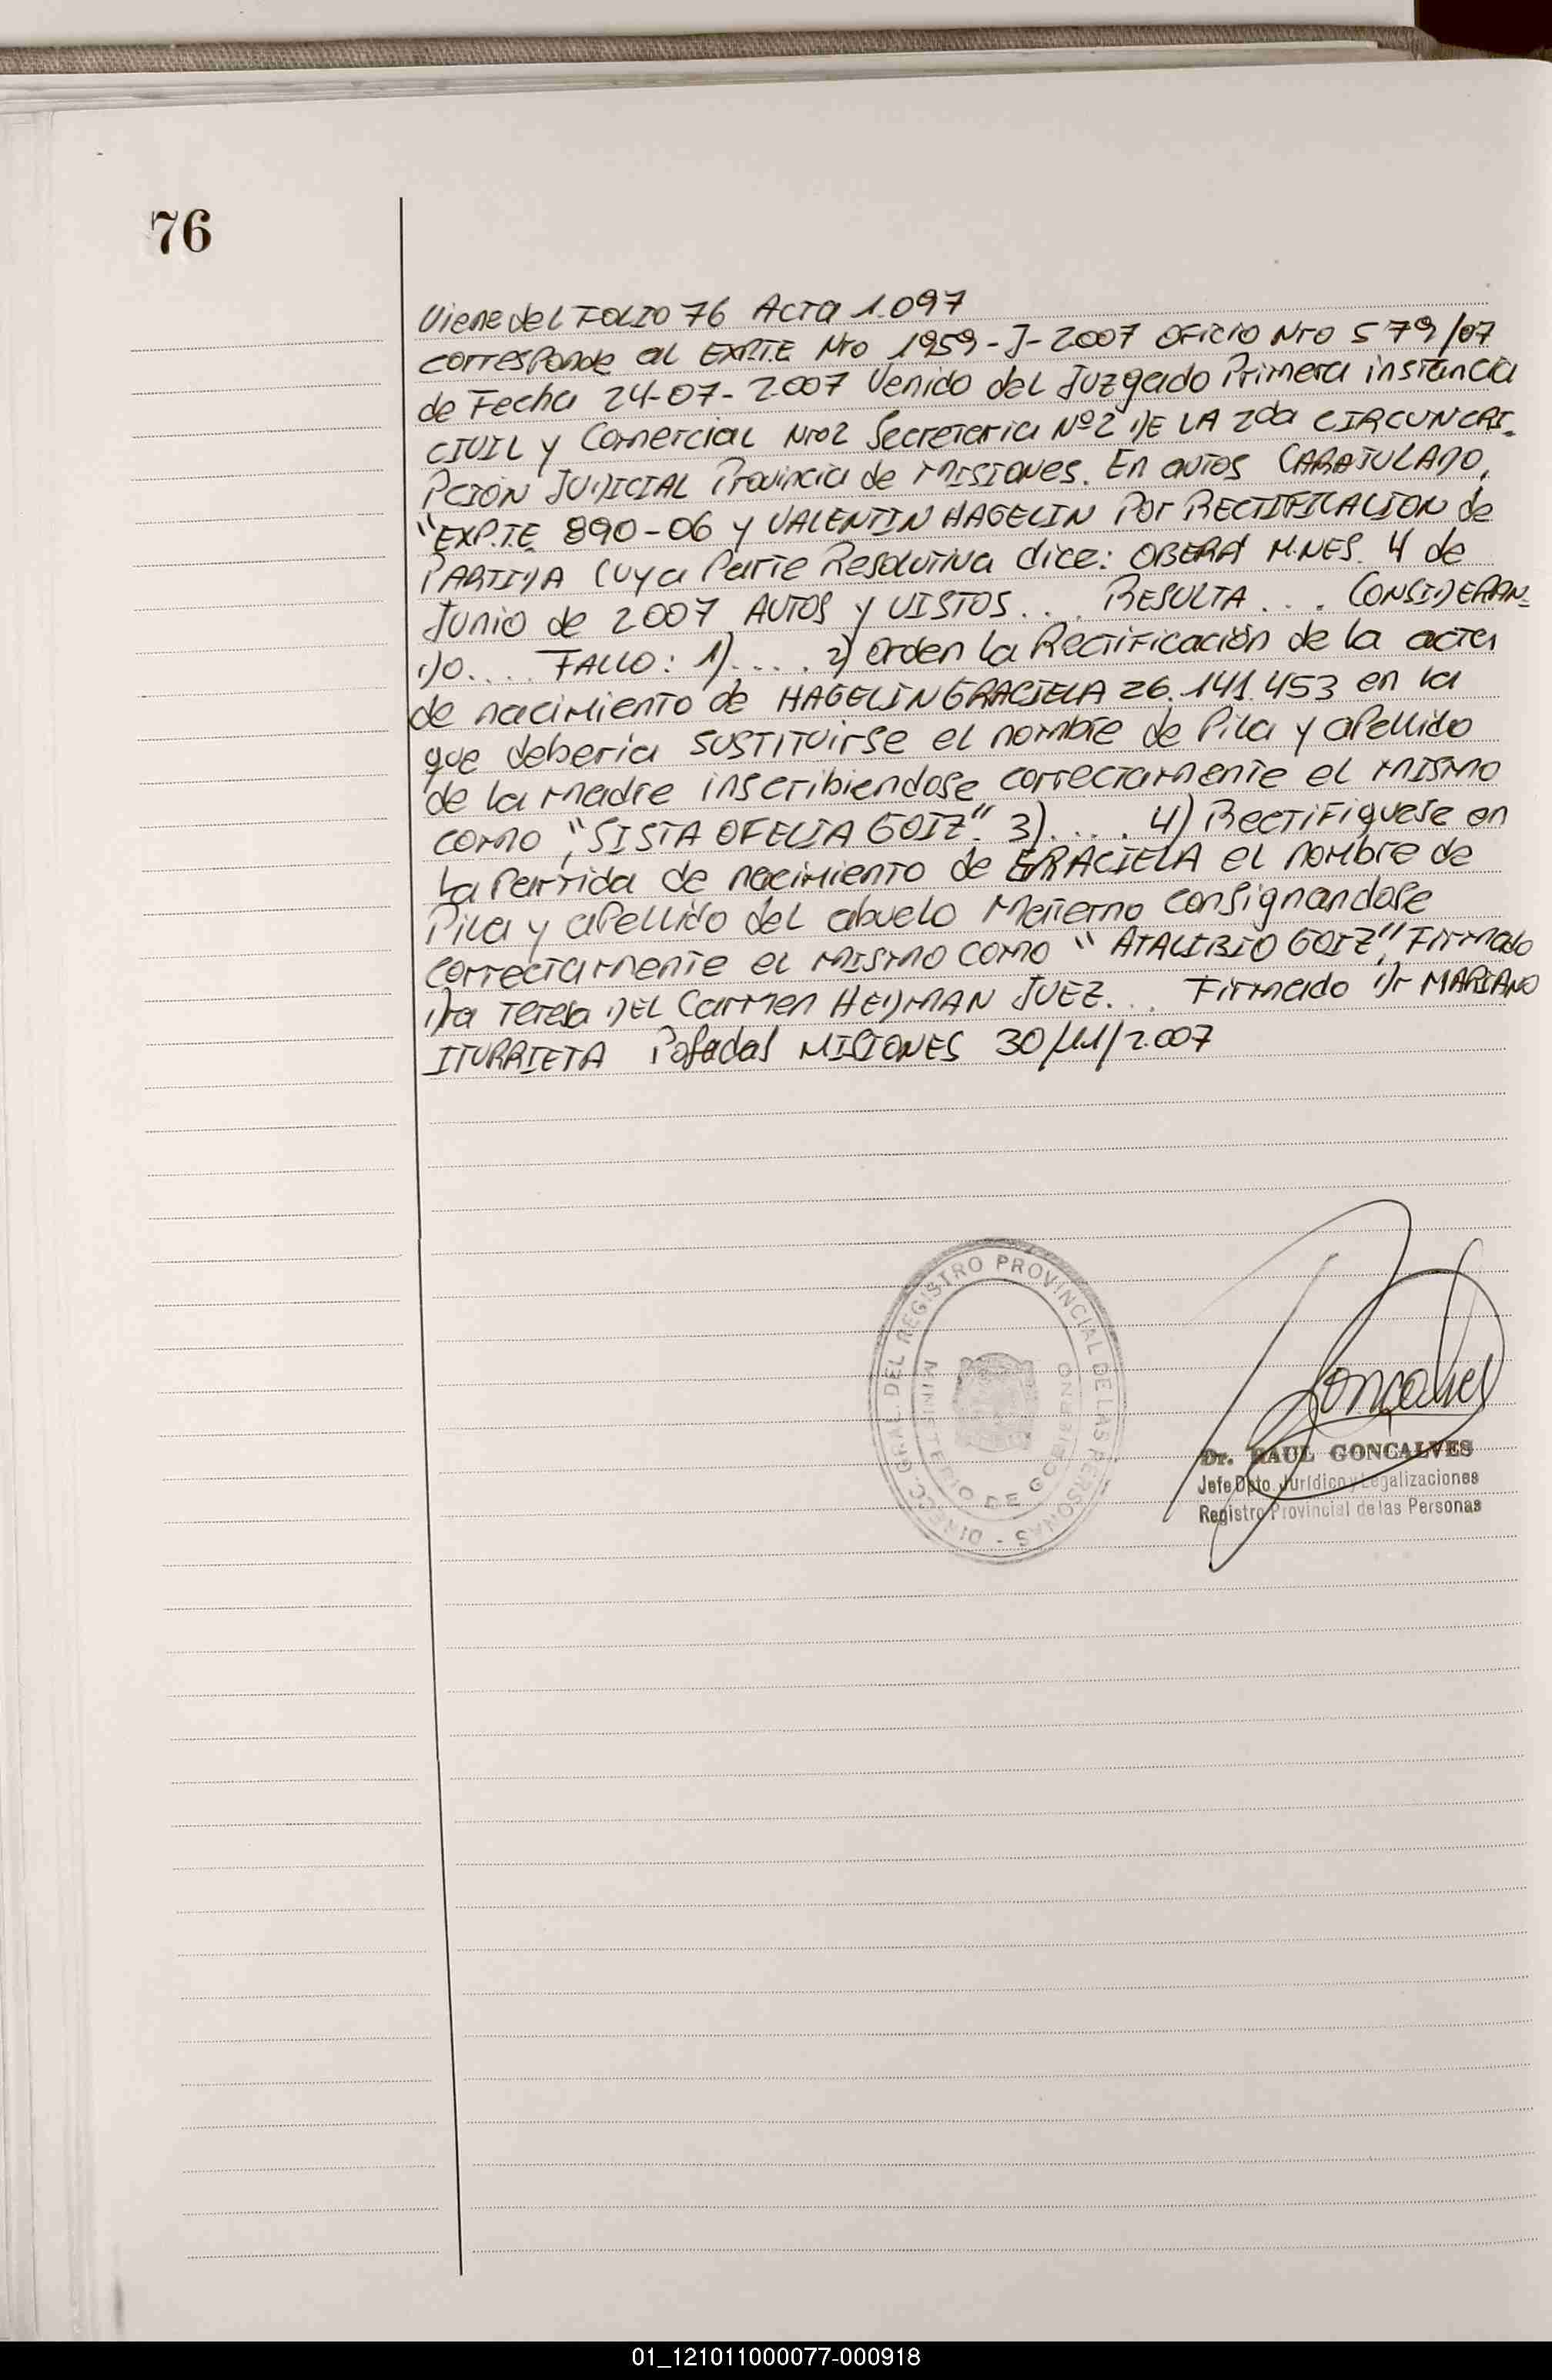 76
Viene del FOLIO 76 Acta 1.097
corresponde al EXP.T.E Nro 1959-J-2007 OFICIO Nro 579/07
de Fecha 24-07-2007 Venido del Juzgado Primera instancia
CIVIL y Comercial Nro2 Secretaria Nº2 DE LA 2da CIRCUNCRI-
PCION JUDICIAL Provincia de MISIONES. En autos CARATULADO,
"EXP.T.E. 890-06 y VALENTIN HAGELIN Por RECTIFICACION de
PARTIDA Cuya Parte Resolutiva dice: OBERÁ M.NES. 4 de
Junio de 2007 AUTOS y VISTOS... RESULTA.... CONSIDERAN-
DO.... FALLO: 1).... 2) Orden la Rectificación de la acta
de nacimiento de HAGELIN GRACIELA 26.141.453 en la
que deberia SUSTITUirse el nombre de Pila y aPellido
de la madre inscribiendose correctamente el MISMO
como, "SISTA OFELIA GOTZ". 3).... 4) RectiFiquese en
La Partida de nacimiento de GRACIELA el nombre de
Pila y aPellido del abuelo Materno consignandose
correctamente el MISMO COMO "ATALIBIO GOTZ", Firmado
Dra Teresa DEL Carmen HEDMAN JUEZ... Firmado Dr MARIANO
ITURRIETA Posadas MISIONES 30/11/2007
DIREC. GRAL. DEL REGISTRO PROVINCIAL DE LAS PERSONAS -
MINISTERIO DE GOBIERNO
Goncalves
Dr. RAUL GONCALVES
Jefe Dpto. Jurídico y Legalizaciones
Registro Provincial de las Personas
01_121011000077-000918